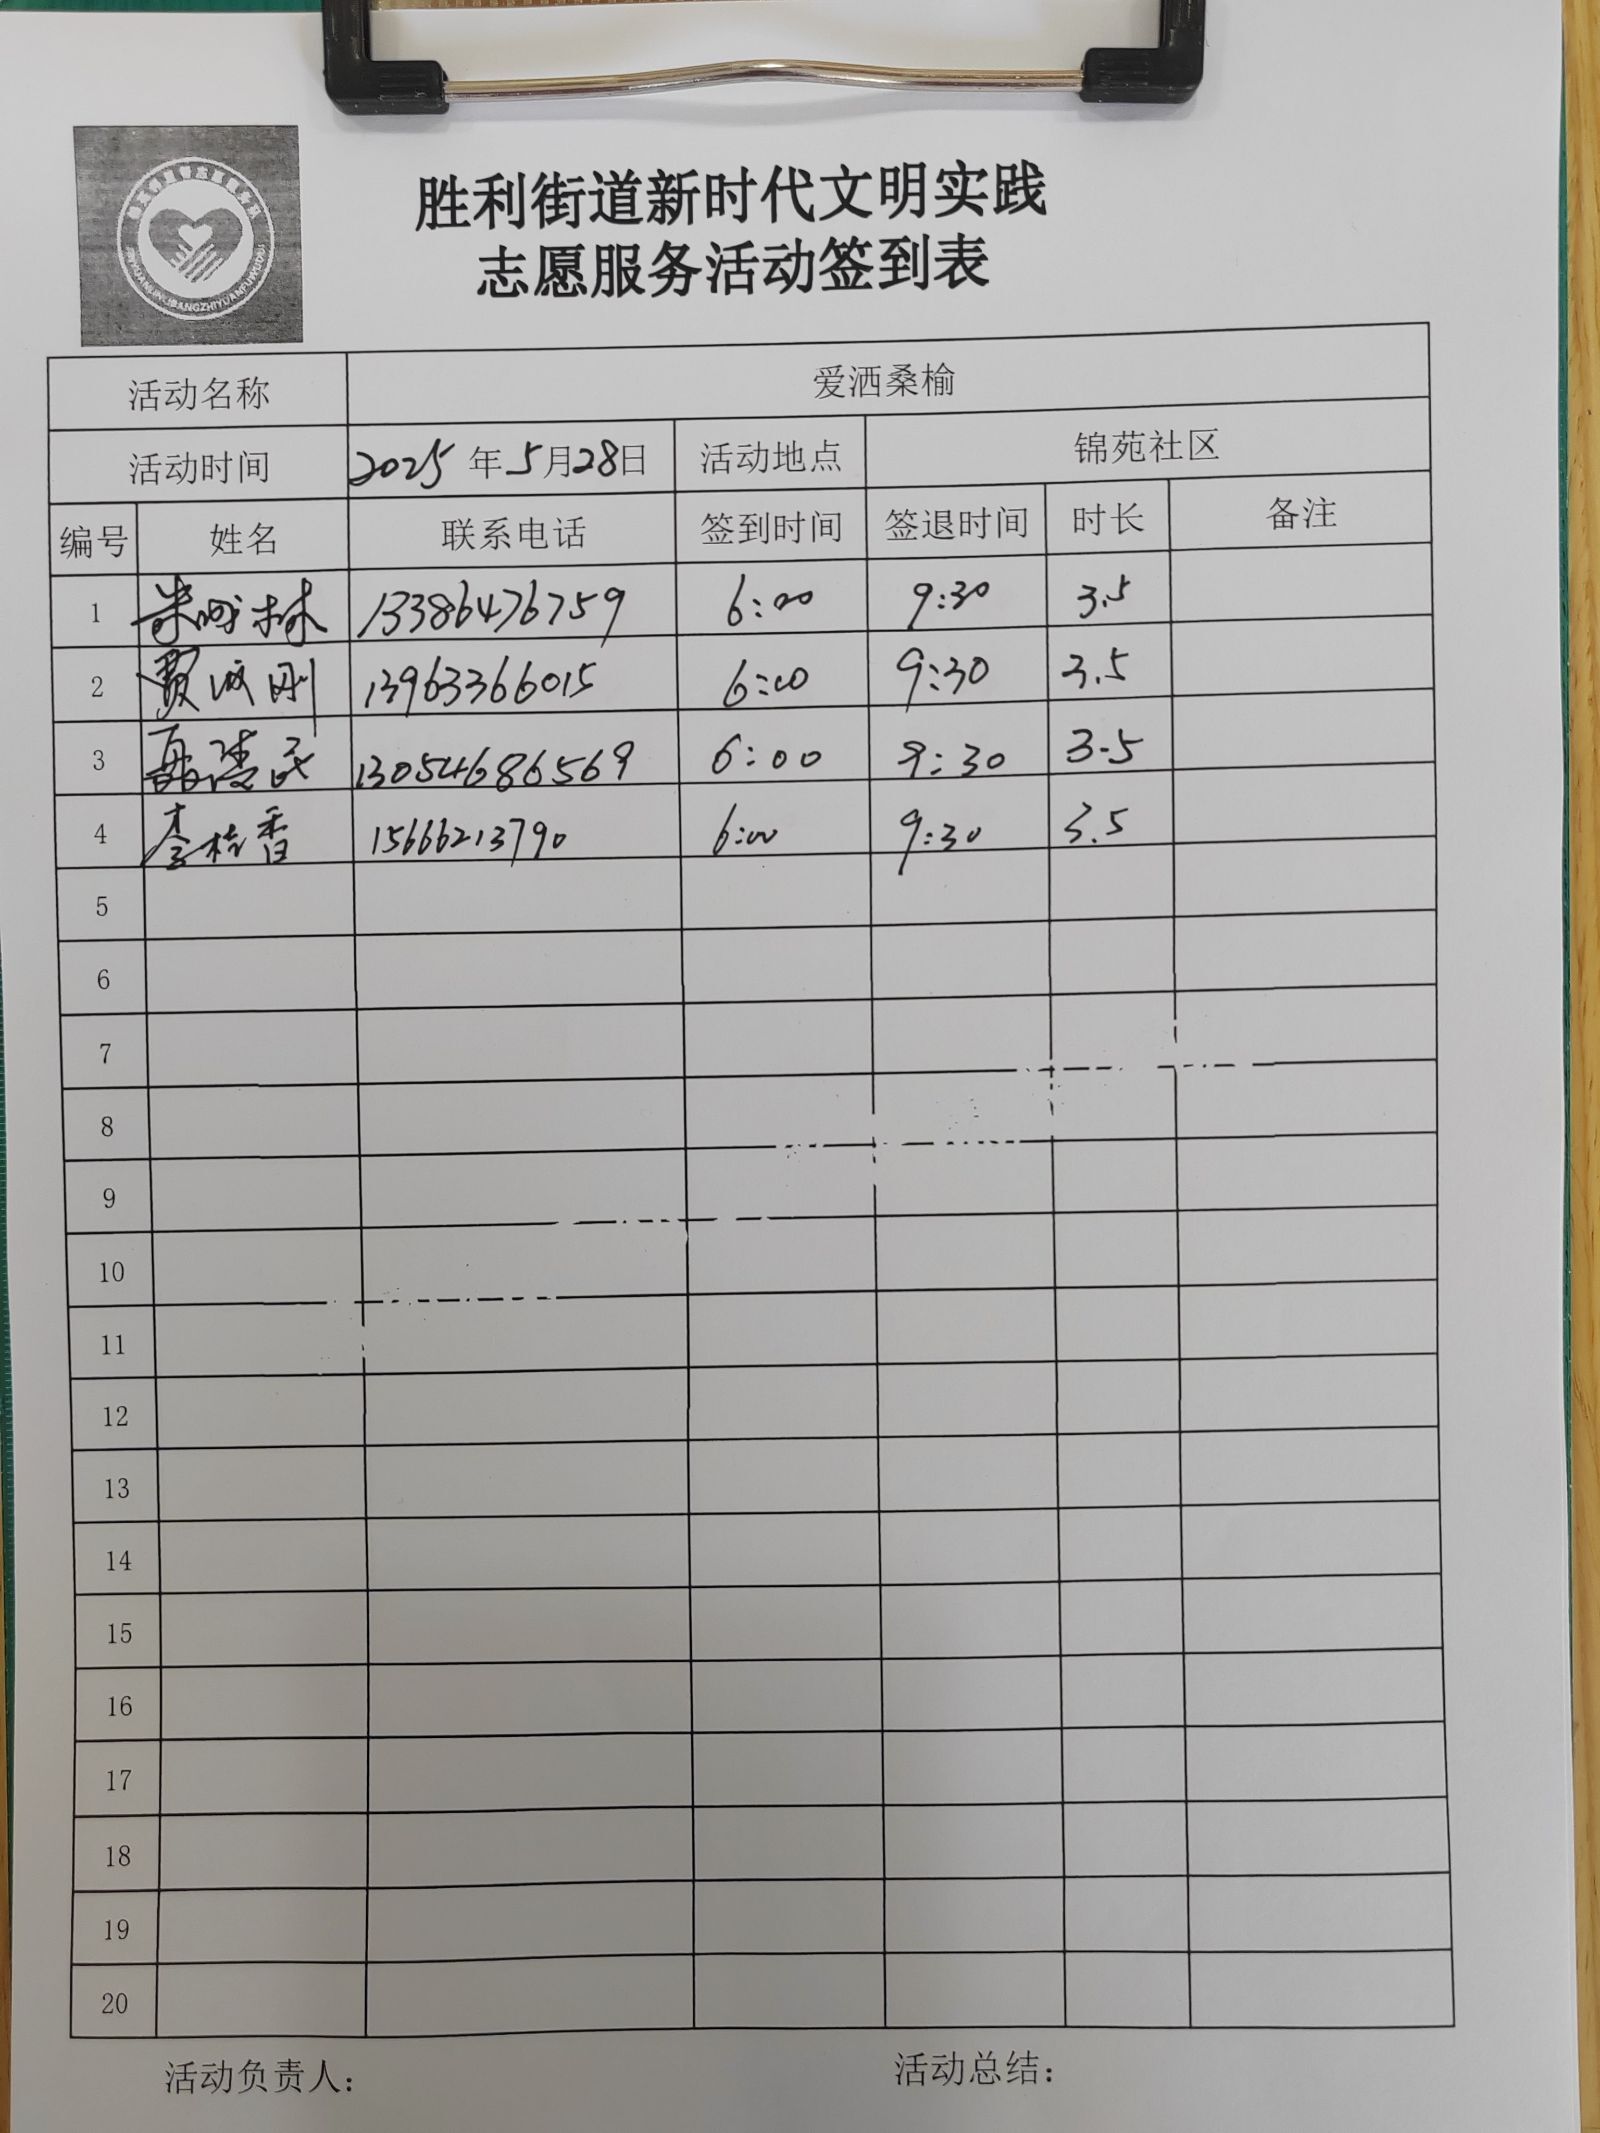 胜利街道新时代文明实践
志愿服务活动签到表
活动名称 爱洒桑榆
活动时间 2025年5月28日 活动地点 锦苑社区
编号 姓名 联系电话 签到时间 签退时间 时长 备注
1 林 13386476759 6:00 9:30 3.5
2 刚 13963366015 6:00 9:30 3.5
3 13054686569 6:00 9:30 3.5
4 李桂香 15666213790 6:00 9:30 3.5
5
6
7
8
9
10
11
12
13
14
15
16
17
18
19
20
活动负责人： 活动总结：